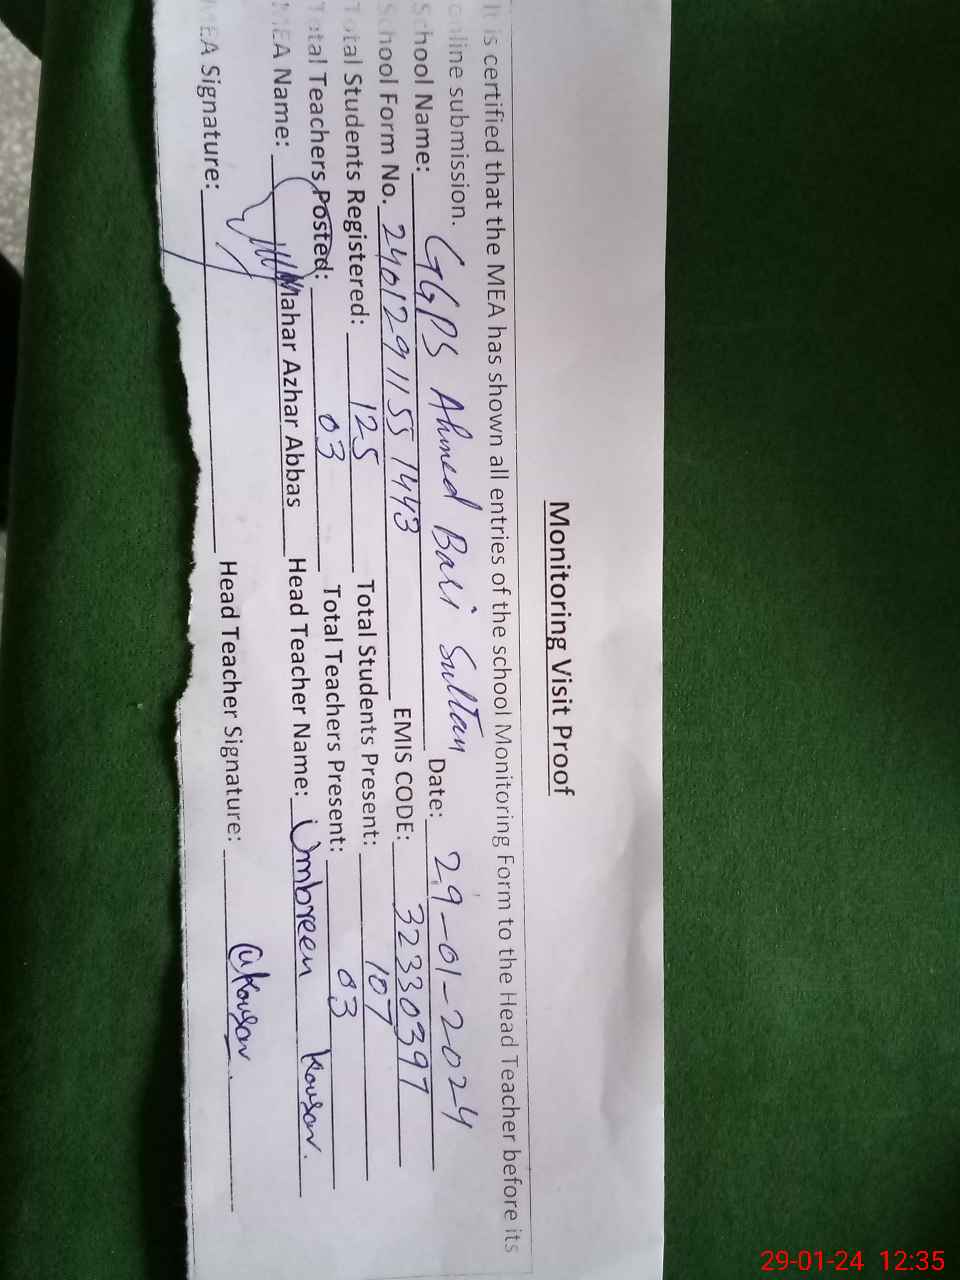 Monitoring Visit Proof
It is certified that the MEA has shown all entries of the school Monitoring Form to the Head Teacher before its
online submission.
School Name: GGPS Ahmed Bari Sultan Date: 29-01-2024
School Form No. 2401291155 1443 EMIS CODE: 32330397
Total Students Registered: 125 Total Students Present: 107
Total Teachers Posted: 03 Total Teachers Present: 03
MEA Name: Mahar Azhar Abbas Head Teacher Name: Umbreen Kousar.
MEA Signature: Head Teacher Signature: Kousar.
29-01-24 12:35